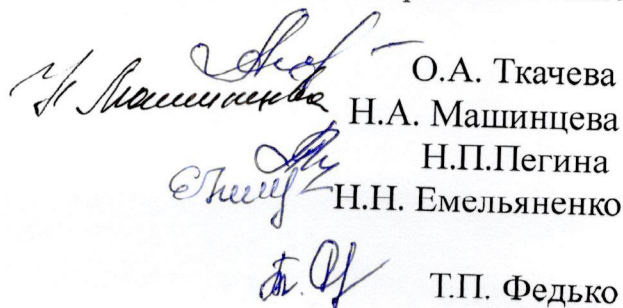 О.А. Ткачева
Н.А. Машинцева
Н.П.Пегина
Н.Н. Емельяненко
Т.П. Федько